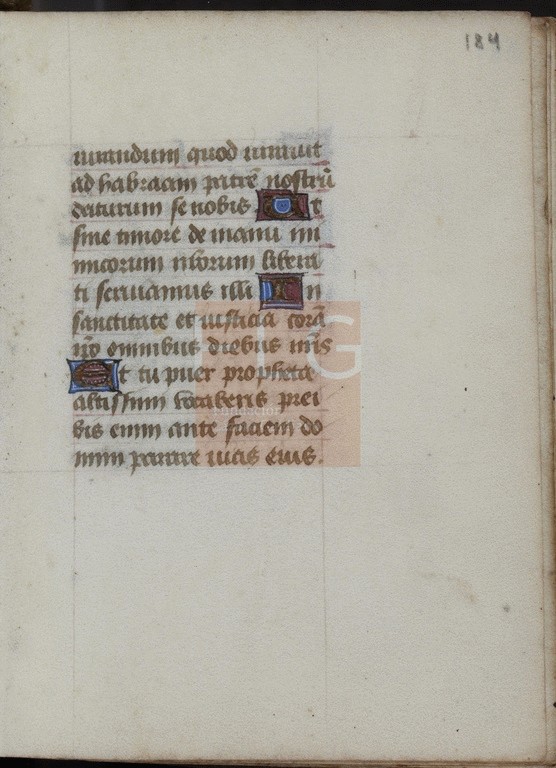 184
iurandum quod iurauit
ad habraam patrē nostrū
daturum se nobis Ut
sine timore de manu ini
micorum nrōrum libera
ti seruiamus illi In
sanctitate et iusticia corā
ipō omnibus diebus nrīs
Et tu puer propheta
altissimi vocaberis prei
bis enim ante faciem do
mini parare uias eius.
fundación